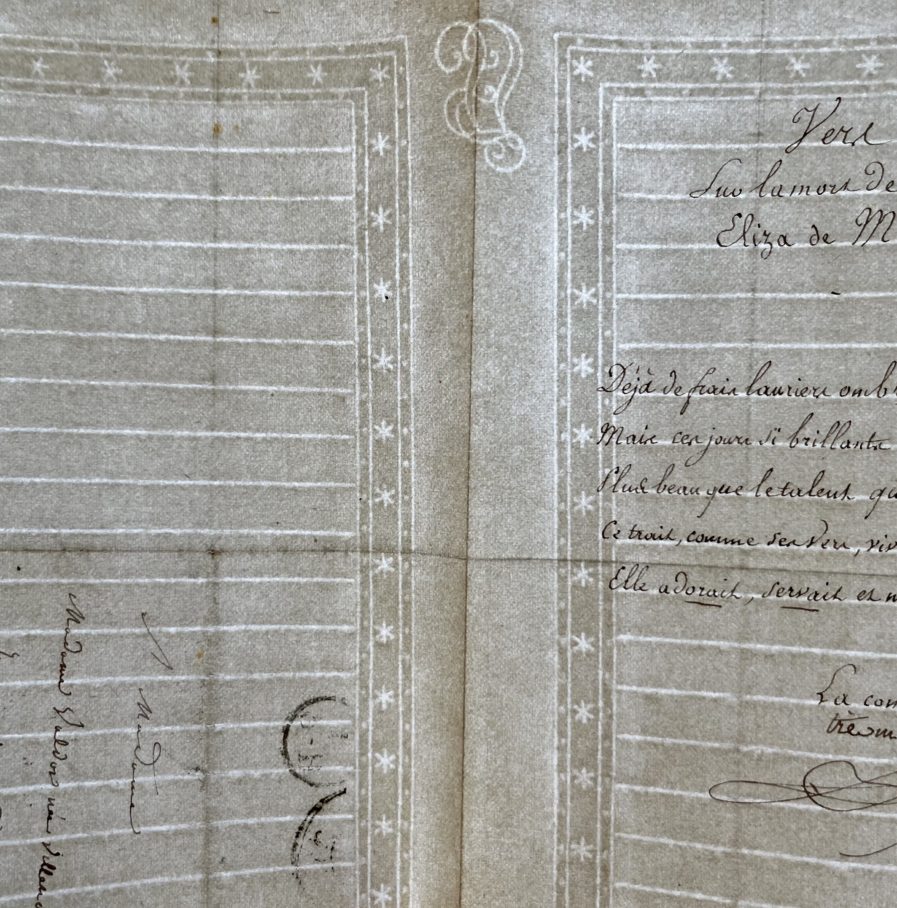 Vers
Sur la mort de
Eliza de M
Déjà de frais lauriers omb
Mais ces jours si brillants
Plus beau que le talent qu
Ce trait, comme ses vers, viv
Elle adorait, servait et n
La com
A Madame
Madame Waldor née Villen